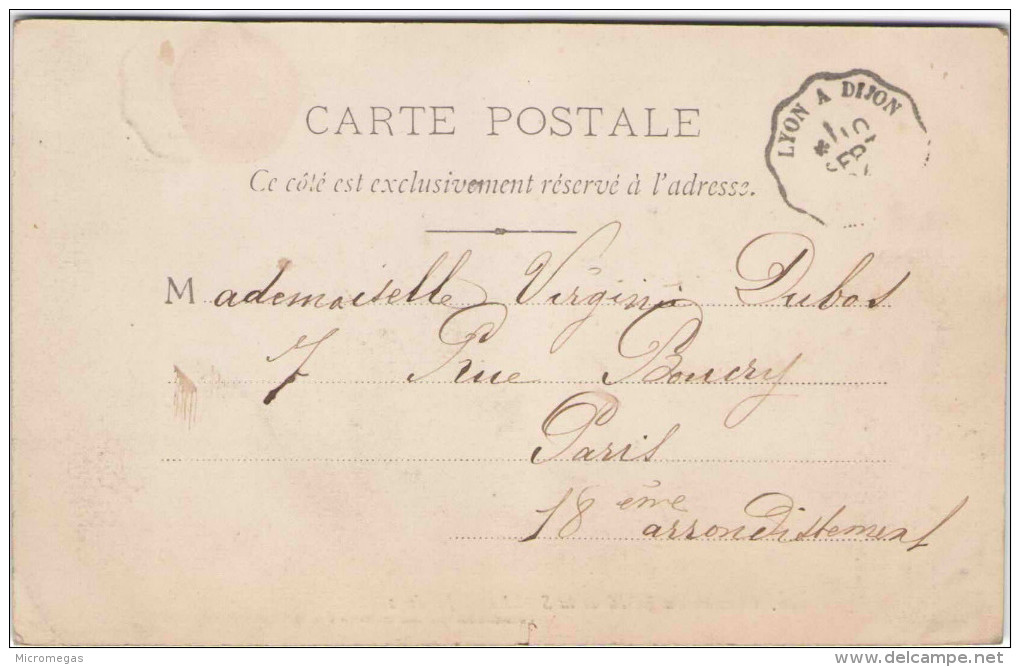 CARTE POSTALE
LYON A DIJON
Ce côté est exclusivement réservé à l'adresse.
Mademoiselle Virginie Dubos
7 Rue Boucry
Paris
18 ème arrondissement
Micromegas
www.delcampe.net